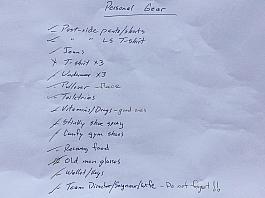 Personal Gear
Post-ride pants/shorts
" " LS T-shirt
Jeans
T-shirt x3
Underwear x3
Pullover - fleece
Toiletries
Vitamins/Drugs - good ones
Stinky shoe spray
Comfy gym shoes
Recovery food
Old man glasses
Wallet/Keys
Team Director/Soigneur/Wife - Do not forget!!